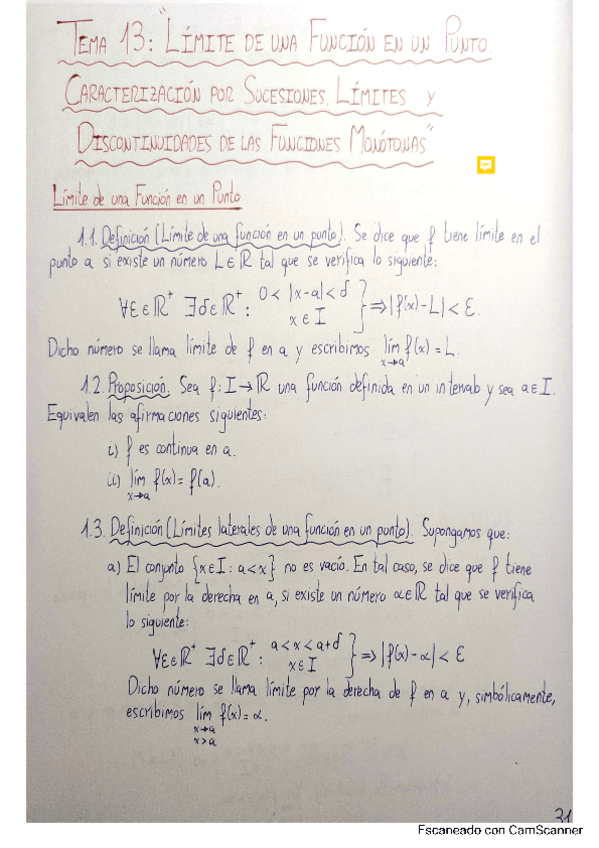 TEMA 13: "LÍMITE DE UNA FUNCIÓN EN UN PUNTO.
CARACTERIZACIÓN POR SUCESIONES. LÍMITES Y
DISCONTINUIDADES DE LAS FUNCIONES MONÓTONAS"
Límite de una Función en un Punto
1.1. Definición (Límite de una función en un punto). Se dice que f tiene límite en el
punto a si existe un número L∈ℝ tal que se verifica lo siguiente:
∀ε∈ℝ⁺ ∃δ∈ℝ⁺: 0<|x-a|<δ
x∈I } ⇒ |f(x)-L|<ε.
Dicho número se llama límite de f en a y escribimos lím f(x)=L.
x→a
1.2. Proposición. Sea f: I→ℝ una función definida en un intervalo y sea a∈I.
Equivalen las afirmaciones siguientes:
i) f es continua en a.
ii) lím f(x)=f(a).
x→a
1.3. Definición (Límites laterales de una función en un punto). Supongamos que:
a) El conjunto {x∈I: a<x} no es vacío. En tal caso, se dice que f tiene
límite por la derecha en a, si existe un número α∈ℝ tal que se verifica
lo siguiente:
∀ε∈ℝ⁺ ∃δ∈ℝ⁺: a<x<a+δ
x∈I } ⇒ |f(x)-α|<ε
Dicho número se llama límite por la derecha de f en a y, simbólicamente,
escribimos lím f(x)=α.
x→a
x>a
31
Escaneado con CamScanner